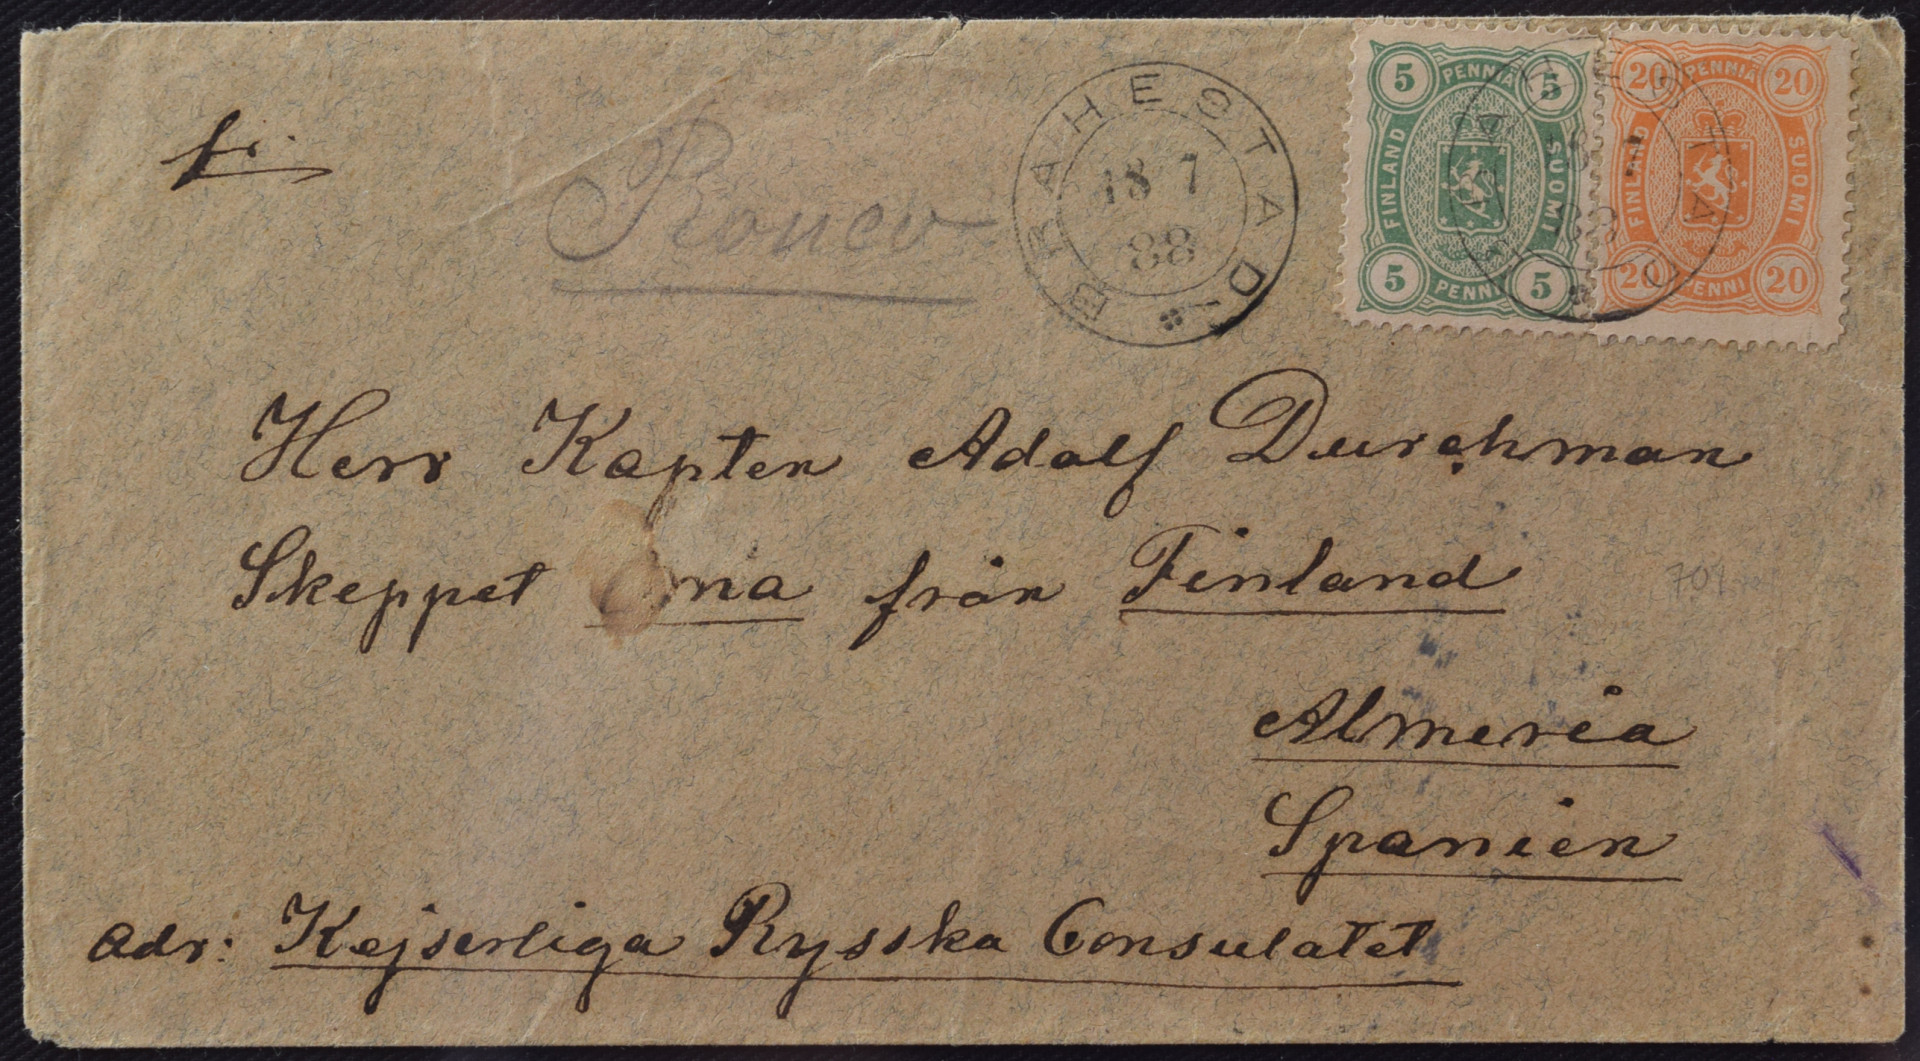 fr.
Roneo
BRAHESTAD
18 7
88
5 PENNIÄ 5
FINLAND SUOMI
5 PENNIÄ 5
20 PENNIÄ 20
FINLAND SUOMI
20 PENNI 20
Herr Kapten Adolf Durchman
Skeppet från Finland
701
Almeria
Spanien
adr: Kejserliga Rysska Consulatet